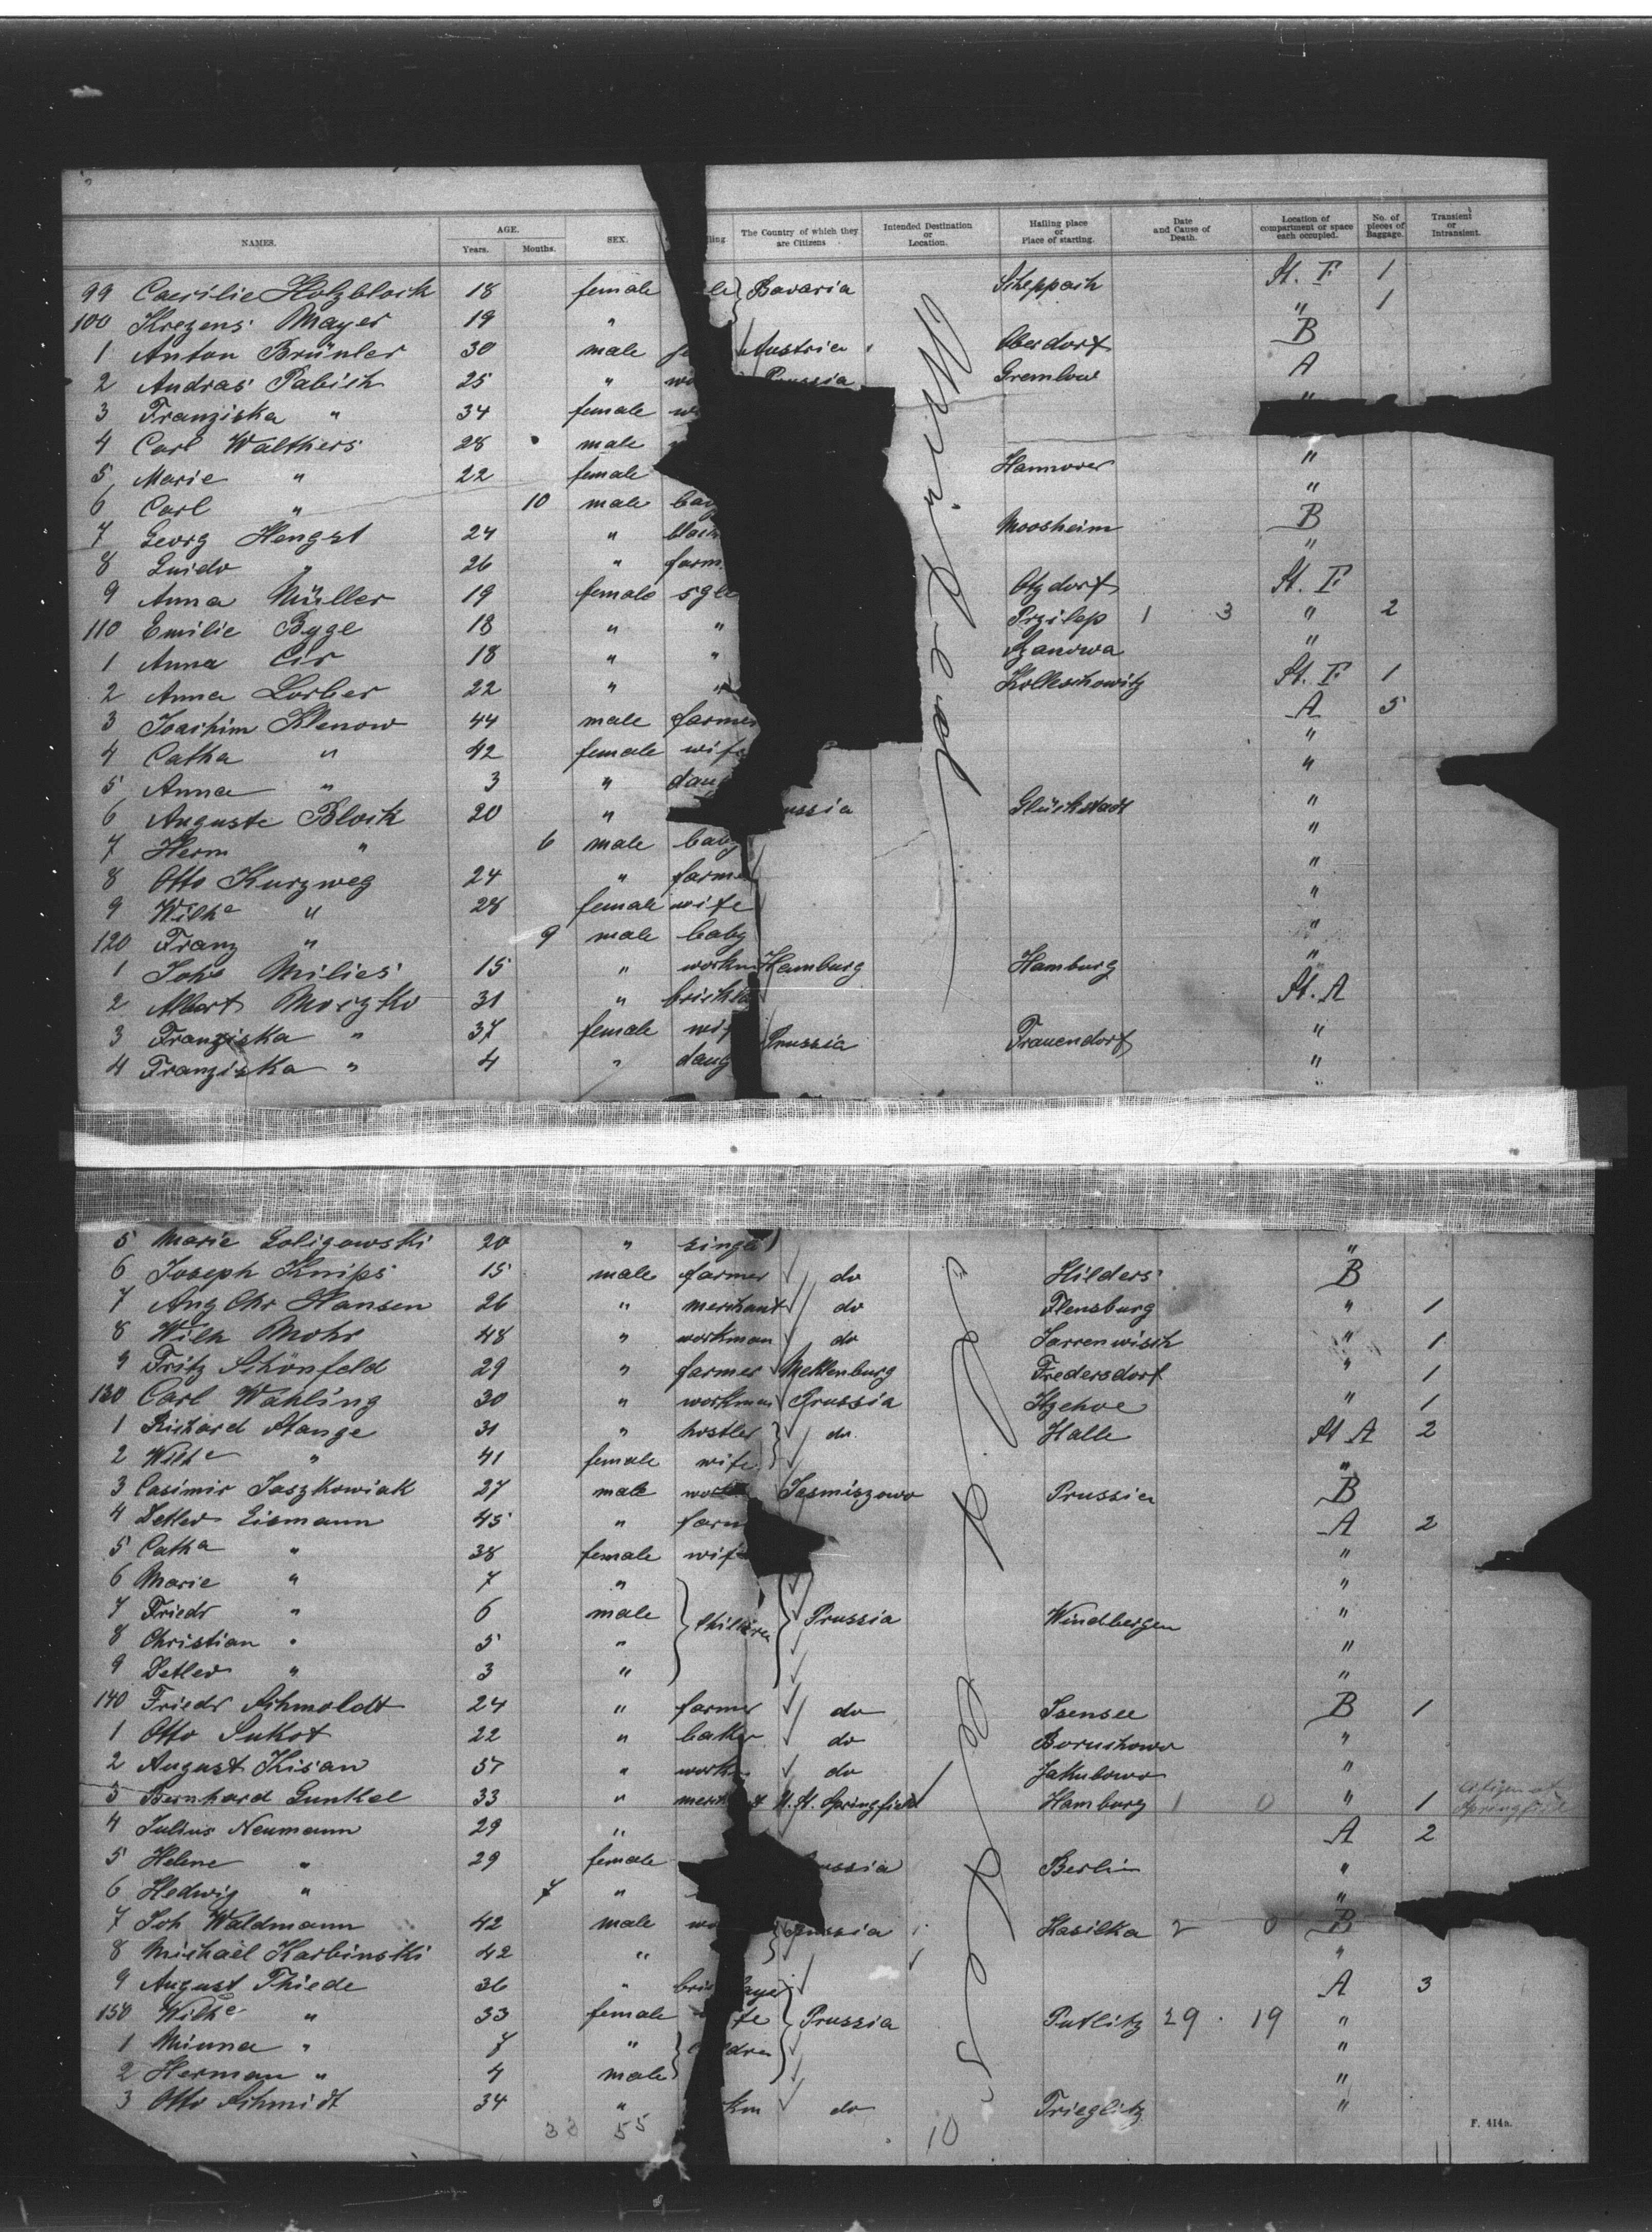 NAMES. AGE. Years. Months. SEX. lling The Country of which they are Citizens Intended Destination or Location. Hailing place or Place of starting. Date and Cause of Death. Location of compartment or space each occupied. No. of pieces of Baggage. Transient or Intransient.
99 Caecilie Holzblock 18 female le Bavaria Scheppach St. F 1
100 Krezens Mayer 19 " " 1
1 Anton Brünler 30 male Austria Oberdorf B
2 Andras Pabich 25 " wo Prussia Gremlow A
3 Franziska " 34 female w "
4 Carl Walthers 28 male
5 Marie " 22 female Hannover "
6 Carl " 10 male bab "
7 Georg Hengst 24 " black Moosheim B
8 Guido " 26 " farm "
9 Anna Müller 19 female sgle Otzdorf St. F
110 Emilie Bygl 18 " " Przilep 1 3 " 2
1 Anna Cir 18 " " "
2 Anna Lorber 22 " " Kolleschowitz St. F 1
3 Joachim Klenow 44 male farmer A 5
4 Catha " 42 female wife "
5 Anna " 3 " daug "
6 Auguste Block 20 " ussia Glückstadt "
7 Herm " 6 male baby "
8 Otto Kurzweg 24 " farmer "
9 Wilhe " 28 female wife "
120 Franz " 9 male baby "
1 Johs Milies 15 " workm Hamburg Hamburg "
2 Albert Moszko 31 " brickla St. A
3 Franziska " 37 female wif Prussia Frauendorf "
4 Franziska " 4 " daug "
5 Marie Goligowski 20 " single "
6 Joseph Knips 15 male farmer do Hilders B
7 Aug Chr Hansen 26 " merchant do Flensburg " 1
8 Wilh Mohr 48 " workman do Sarrenwisch " 1
9 Fritz Schönfeld 29 " farmer Meklenburg Fredersdorf " 1
130 Carl Wahling 30 " workman Prussia Itzehoe " 1
1 Richard Stange 31 " hostler do Halle St A 2
2 Wilhe " 41 female wife "
3 Casimir Jaszkowiak 27 male work Jasmiszewo Prussia B
4 Detlev Eismann 45 " farm A 2
5 Catha " 38 female wife "
6 Marie " 7 " "
7 Friedr " 6 male children Prussia Windbergen "
8 Christian " 5 " "
9 Detlev " 3 " "
140 Friedr Schmoldt 24 " farmer do Isensee B 1
1 Otto Sukot 22 " baker do Boruchowo "
2 August Kisan 57 " workm do Jakubowo "
3 Bernhard Gunkel 33 " merchant U.St. Springfield Hamburg 1 0 " 1 Citizen at Springfield
4 Julius Neumann 29 " A 2
5 Helene " 29 female ussia Berlin "
6 Hedwig " 7 " "
7 Joh Waldmann 42 male wo Prussia Hasilka 2 0 B
8 Michael Karbinski 42 " "
9 August Thiede 36 " bric layer A 3
150 Wilhe " 33 female fe Prussia Putlitz 29 . 19 "
1 Minna " 7 " ldren "
2 Herman " 4 male "
3 Otto Schmidt 34 " km do Trieglitz "
33 55 10 11
F. 414a.